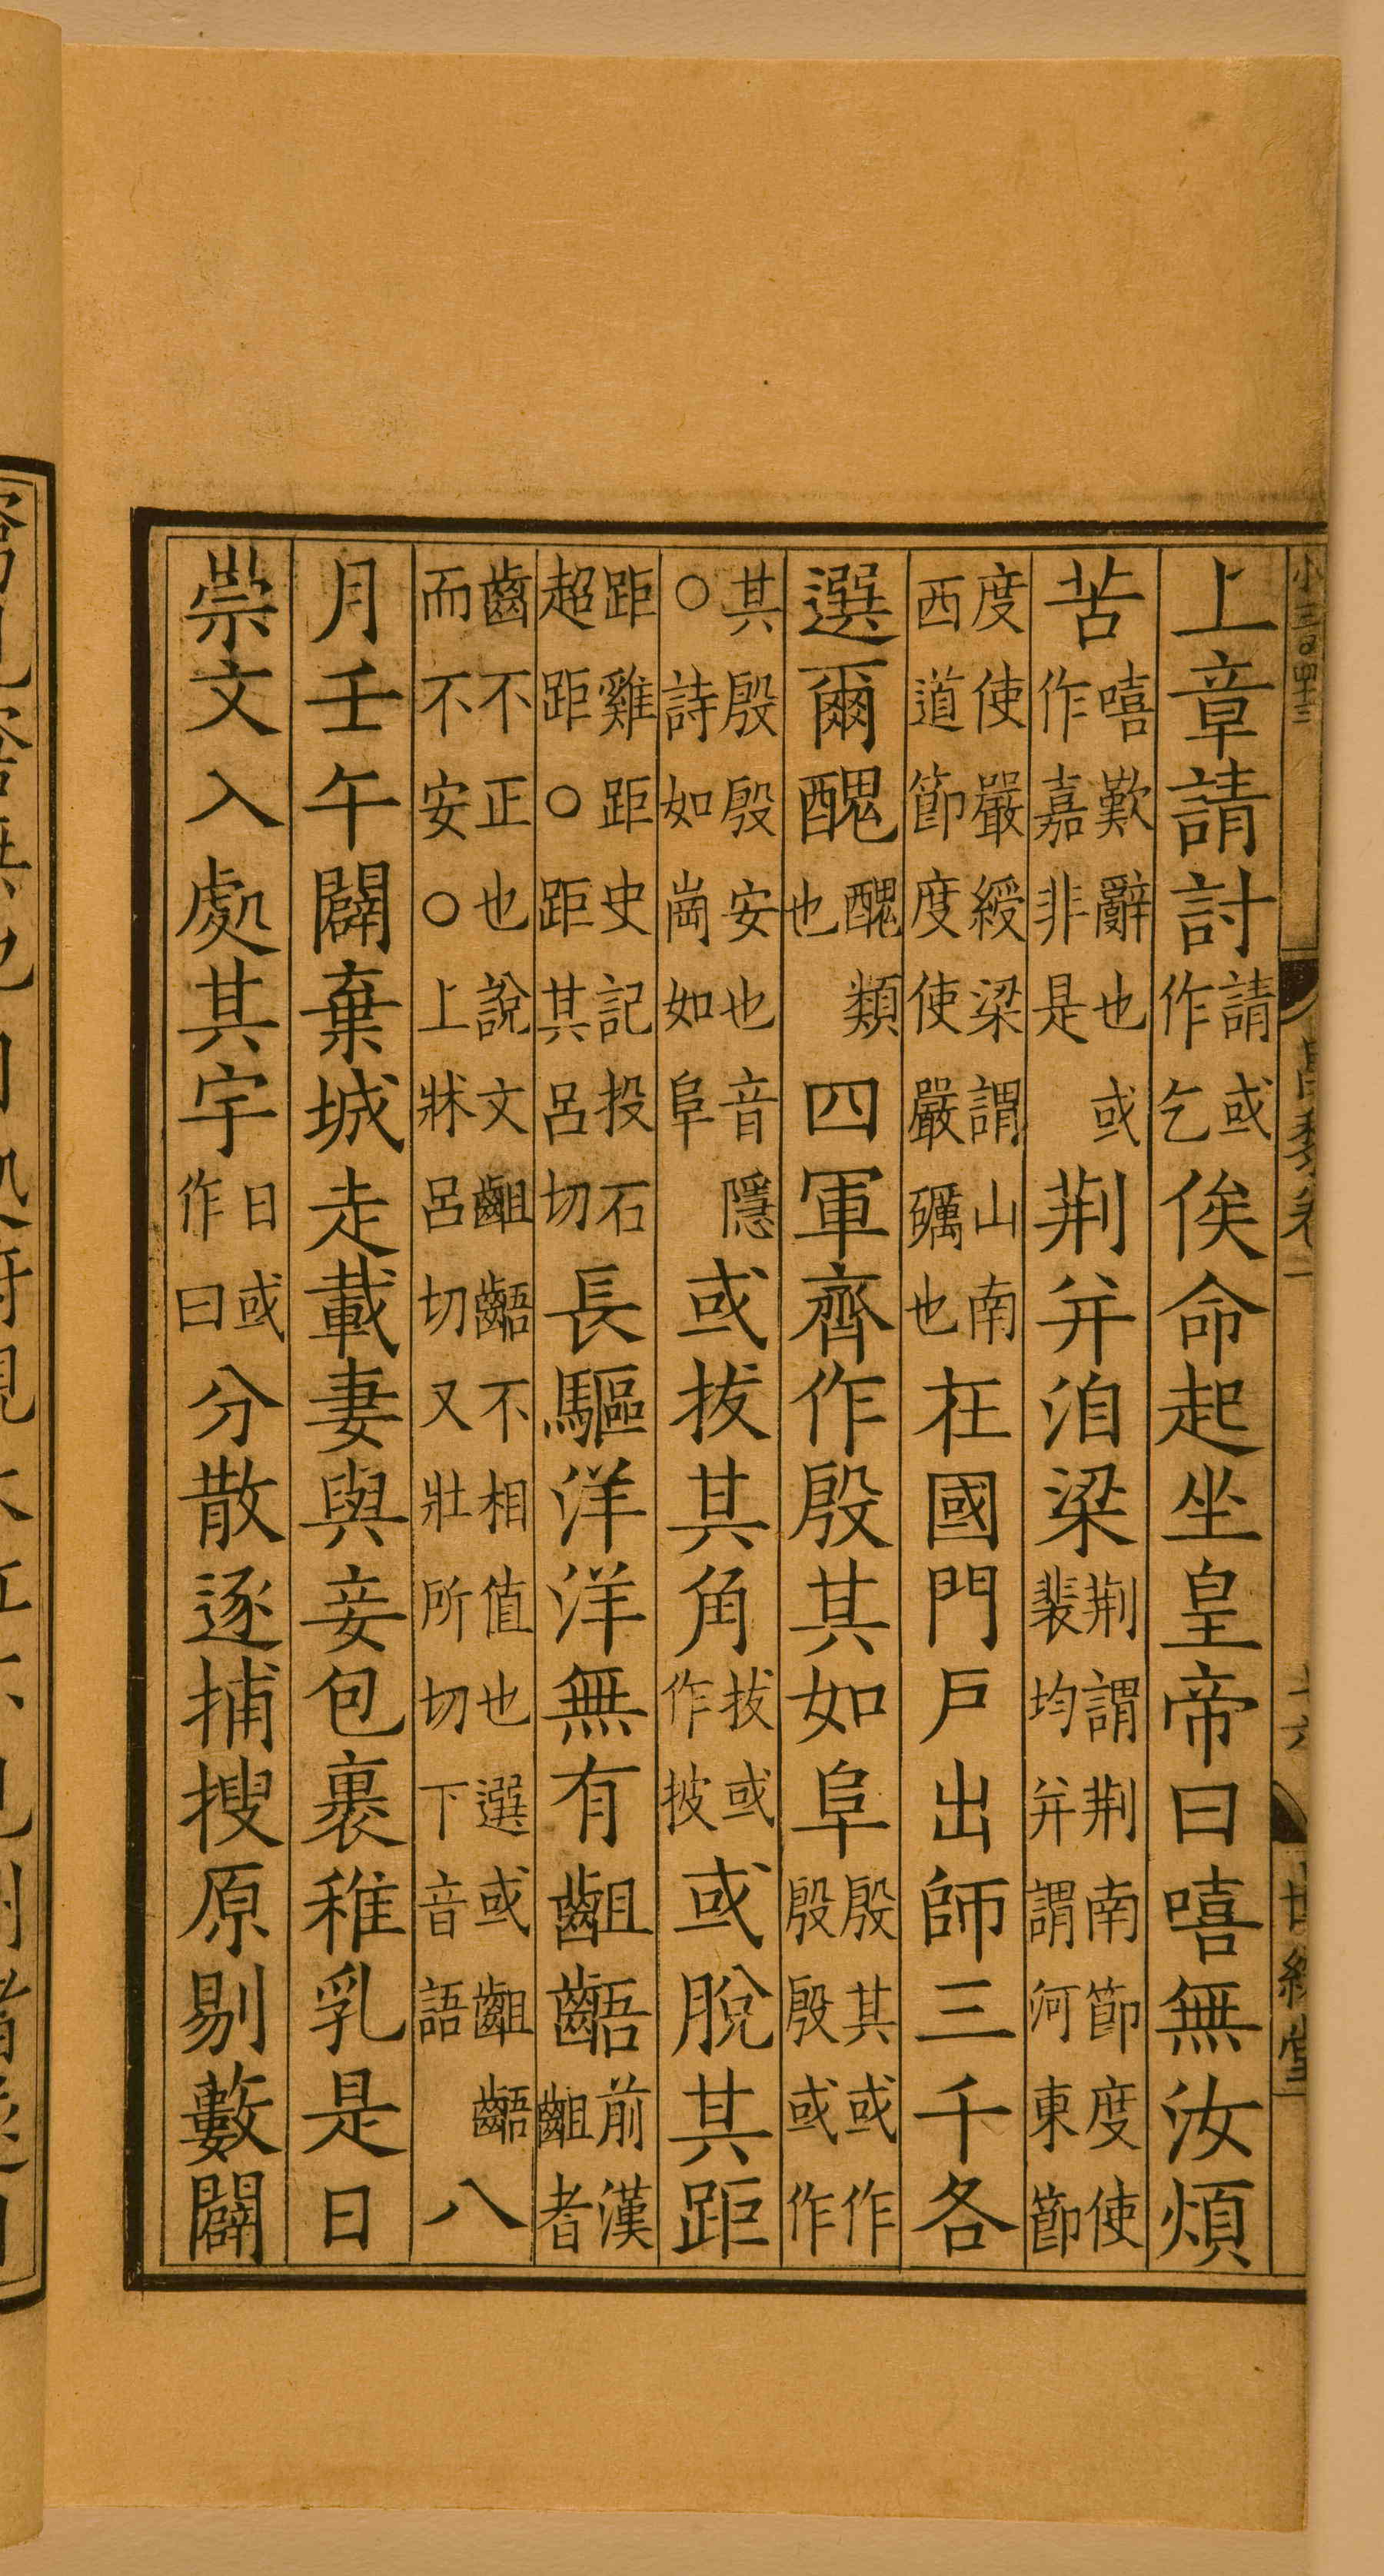 上章請討請或作乞俟命起坐皇帝曰嘻無汝煩
苦嘻歎辭也或作嘉非是荆并洎梁荆謂荆南節度使裴均并謂河東節
度使嚴綬梁謂山南西道節度使嚴礪也在國門戶出師三千各
選爾醜醜類也四軍齊作殷其如阜殷其或作殷殷或作
其殷殷安也音隱○詩如崗如阜或拔其角拔或作披或脫其距
距雞距史記投石超距○距其呂切長驅洋洋無有齟齬前漢齟者
齒不正也說文齟齬不相值也選或齟齬而不安○上牀呂切又壯所切下音語八
月壬午闢棄城走載妻與妾包裹稚乳是日
崇文入處其宇日或作曰分散逐捕搜原剔藪闢
小三百四十三
世綵堂